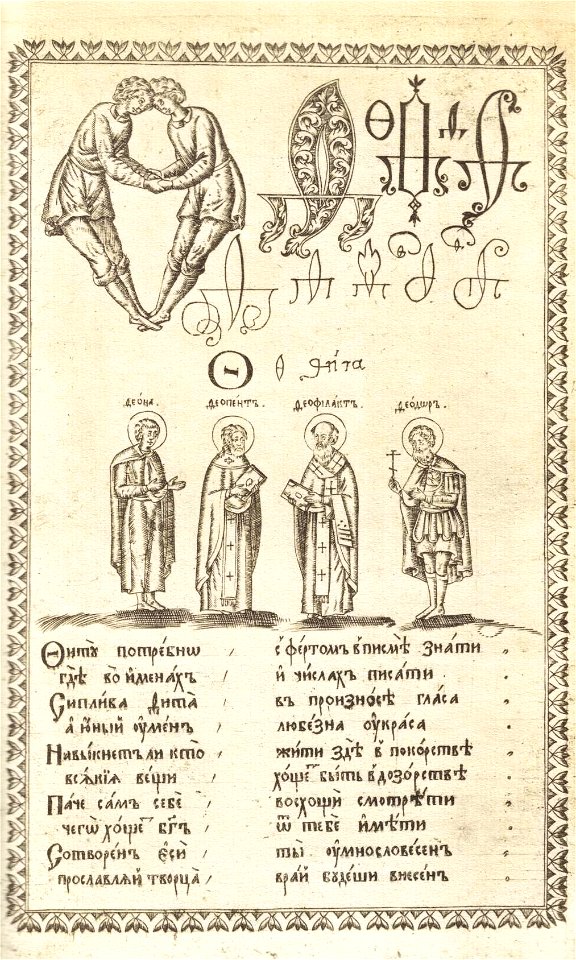 Ѳ Ѳ ѳи́та
Ѳео́на. Ѳеопе́нтъ. Ѳеофила́ктъ. Ѳео́дѡръ.
Ѳитꙋ̀ потре́бнѡ с̾ фе́ртомъ в̾ писмѣ̀ зна́ти
гдѣ̀ во и҆менахъ и҆ чи́слахъ писа́ти
Сипли́ва ѳита̀ въ произно́сѣ гла́са
а҆ ю҆́ный ᲂу҆ме́нъ любе́зна ᲂу҆кра́са
Навы́кнетъ ли кто̀ жи́ти здѣ̀ в̾ поко́рствѣ
вся́кїѧ ве́щи хо́щеⷮ бы́ть в̾ дозо́рствѣ
Па́че са́мъ себѐ восхощѝ смотрѣ́ти
чегѡ̀ хо́щеⷮ бг҃ъ ѿ тебѐ и҆мѣ́ти
Сотворе́нъ є҆сѝ ты̀ ᲂу҆мнослове́сенъ
прославлѧ́й творца̀ в̾ра́й бꙋ́деши внесе́нъ